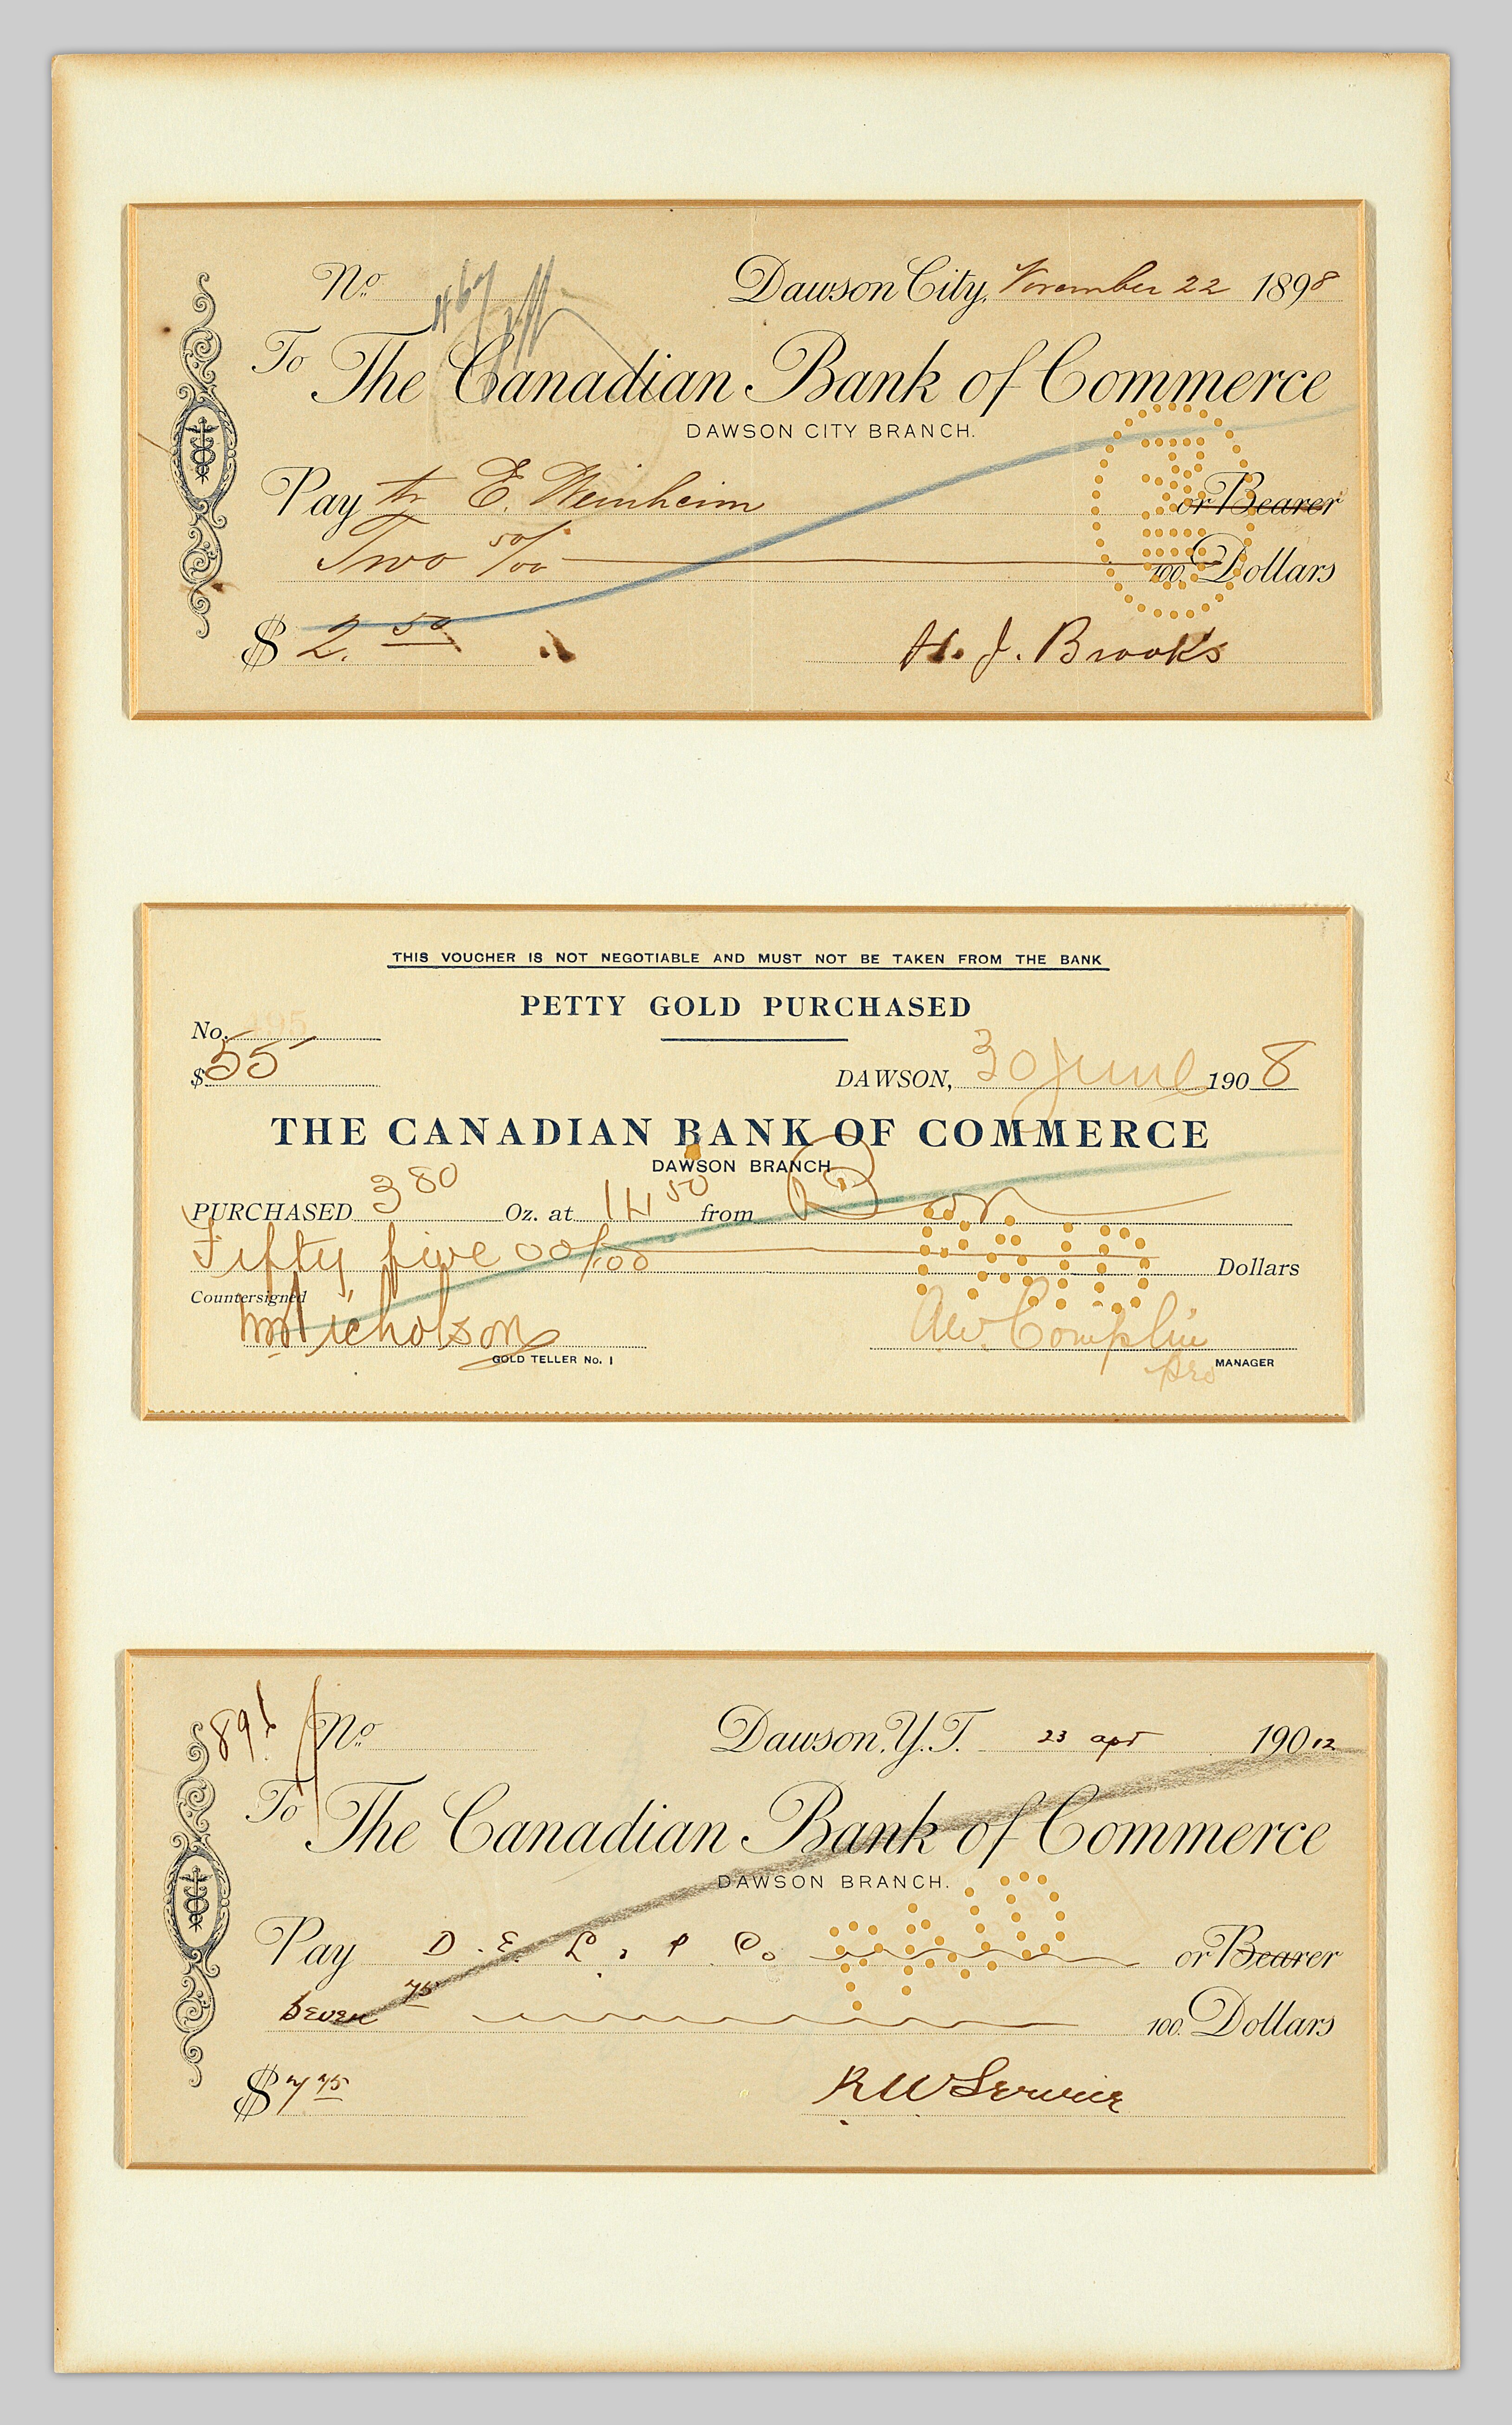 No. Dawson City, November 22 1898
To The Canadian Bank of Commerce
DAWSON CITY BRANCH.
Pay to E. Weinheim or Bearer
Two 50/100 100 Dollars
$ 2. 50
H. J. Brooks
THIS VOUCHER IS NOT NEGOTIABLE AND MUST NOT BE TAKEN FROM THE BANK
PETTY GOLD PURCHASED
No.
$ 55
DAWSON, 30 June 1908
THE CANADIAN BANK OF COMMERCE
DAWSON BRANCH
PURCHASED 3 80 Oz. at 14 50 from
Fifty five 00/100 Dollars
PAID
Countersigned
Nicholson
GOLD TELLER No. 1
Complin
pro MANAGER
No. Dawson, Y.T. 23 apr 190 12
To The Canadian Bank of Commerce
DAWSON BRANCH.
PAID
Pay D. E. L. & P Co. or Bearer
Seven 75 100 Dollars
$ 7 75
R W Service